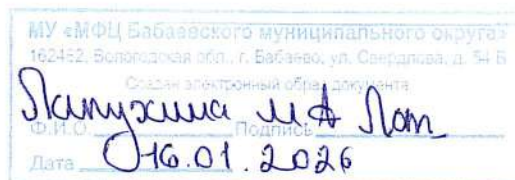 МУ «МФЦ Бабаевского муниципального округа»
162482, Вологодская обл., г. Бабаево, ул. Свердлова, д. 54 Б
Создан электронный образ документа
Лапухина М А
Ф.И.О. Подпись
Дата 16.01.2026